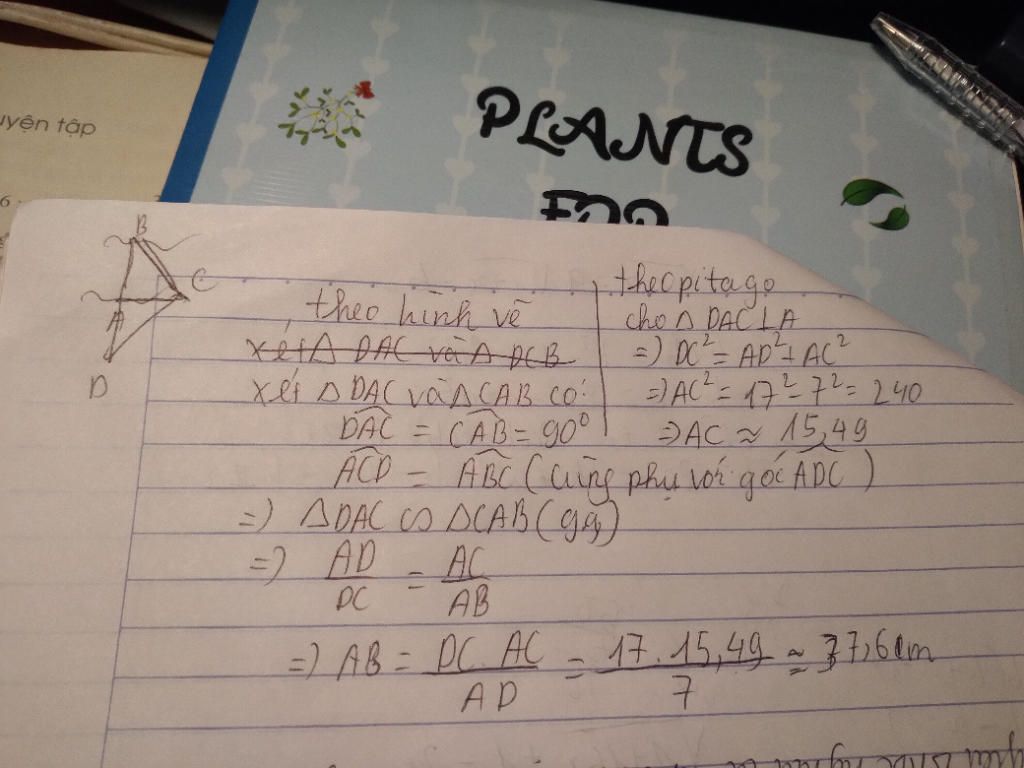 uyện tập
PLANTS
FOR
B
C
A
D
theo hình vẽ
xét Δ DAC và Δ DCB
xét Δ DAC và Δ CAB có:
DAC = CAB = 90⁰
ACD = ABC (cùng phụ với góc ADC)
=) Δ DAC ∽ Δ CAB (gg)
=) AD/DC = AC/AB
=) AB = DC.AC/AD = 17.15,49/7 ≈ 37,6cm
theo pitago
cho Δ DAC ⊥ A
=) DC² = AD² + AC²
=) AC² = 17² - 7² = 240
=) AC ≈ 15,49